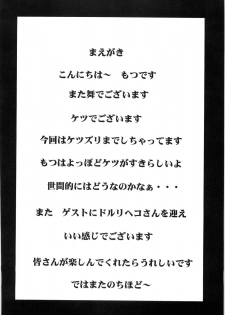 まえがき
こんにちは〜　もつです
また舞でございます
ケツでございます
今回はケツズリまでしちゃってます
もつはよっぽどケツがすきらしいよ
世間的にはどうなのかなぁ・・・
また　ゲストにドルリヘコさんを迎え
いい感じでございます
皆さんが楽しんでくれたらうれしいです
ではまたのちほど〜